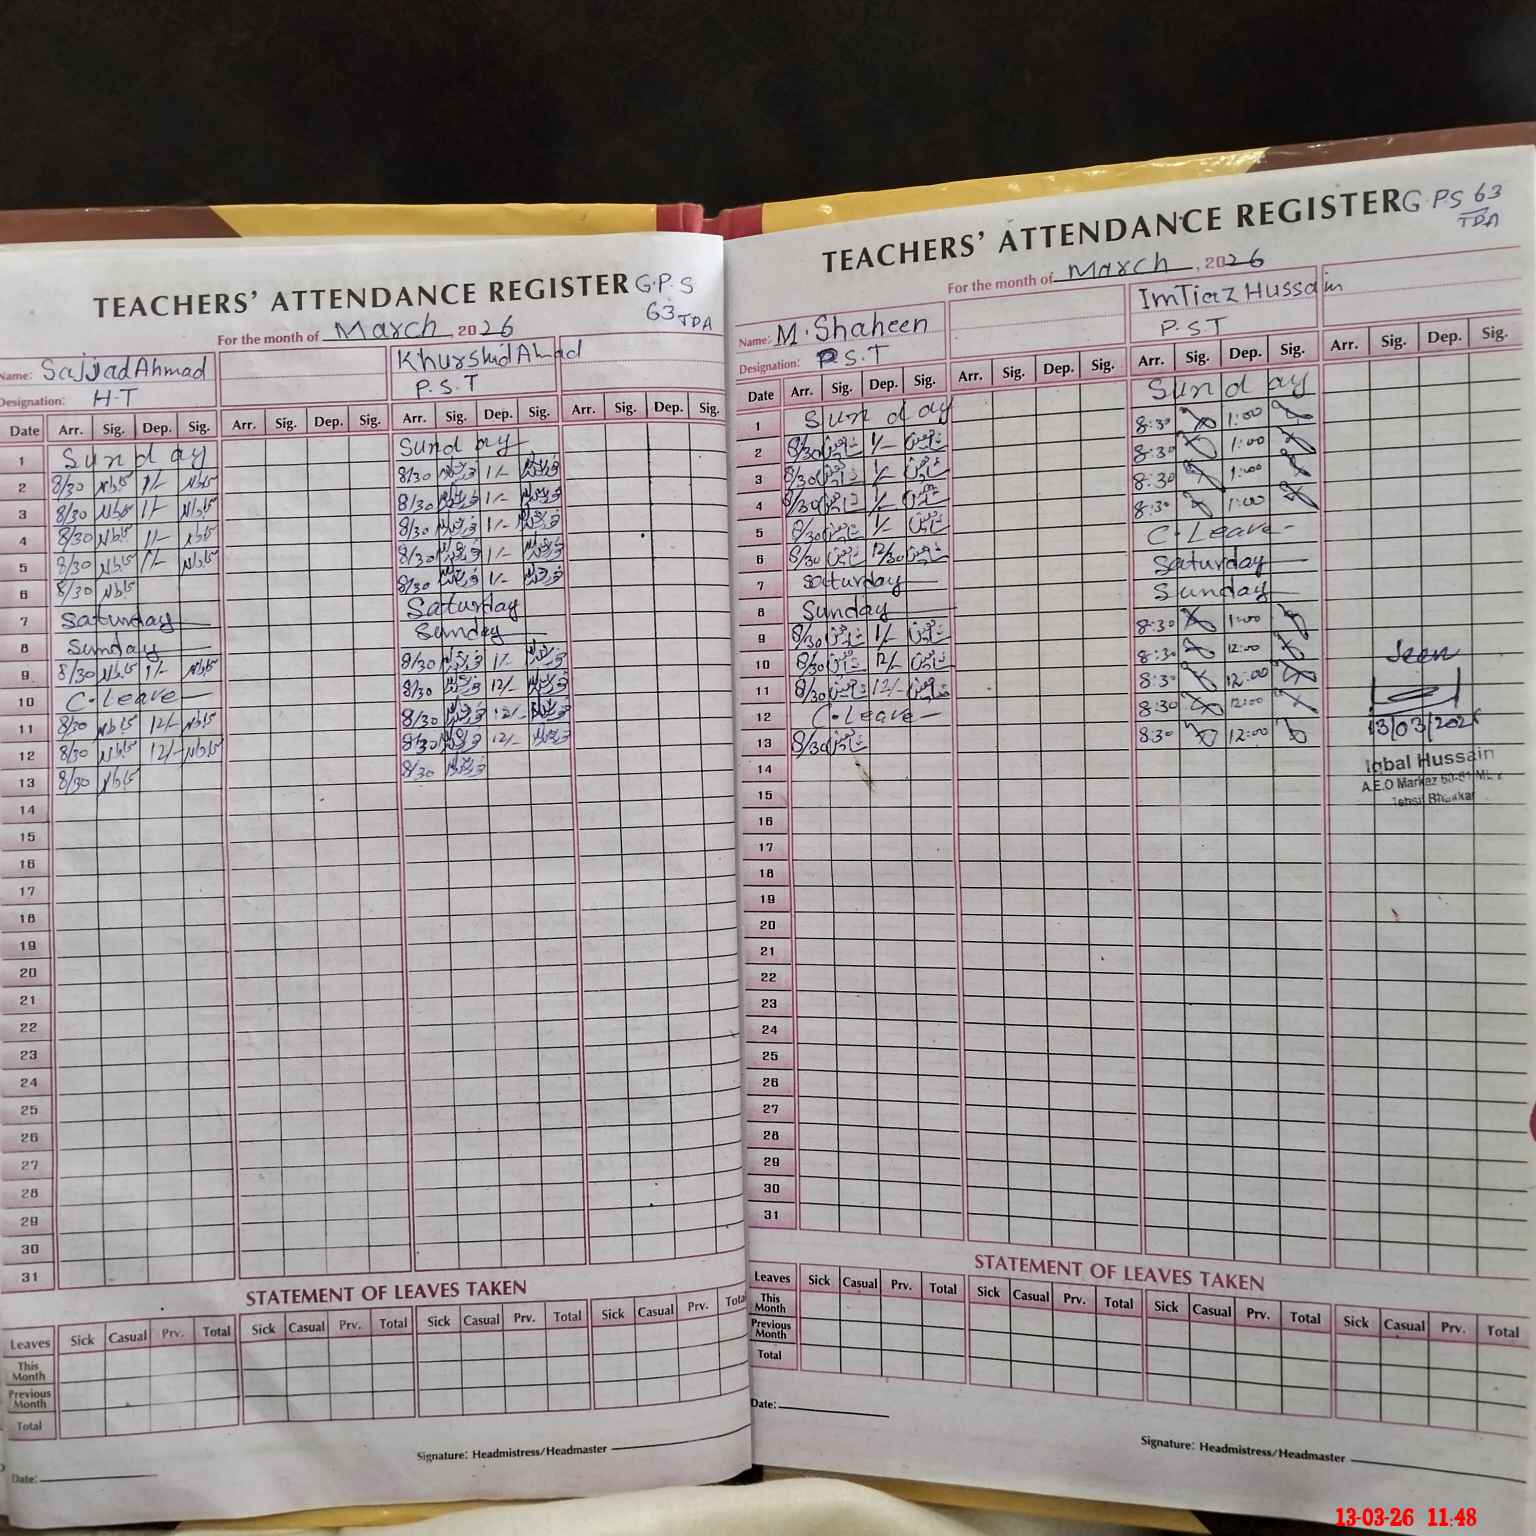 TEACHERS' ATTENDANCE REGISTER G.P.S
63 TDA
For the month of March, 2026
Name: Sajjad Ahmad Khurshid Ahmad
Designation: H.T P.S.T
Date Arr. Sig. Dep. Sig. Arr. Sig. Dep. Sig. Arr. Sig. Dep. Sig. Arr. Sig. Dep. Sig.
1 Sunday Sunday
2 8/30 1/- 8/30 1/-
3 8/30 1/- 8/30 1/-
4 8/30 1/- 8/30 1/-
5 8/30 1/- 8/30 1/-
6 8/30 8/30 1/-
7 Saturday Saturday
8 Sunday Sunday
9 8/30 1/- 8/30 1/-
10 C.Leave 8/30 12/-
11 8/30 12/- 8/30 12/-
12 8/30 12/- 8/30 12/-
13 8/30 8/30
14
15
16
17
18
19
20
21
22
23
24
25
26
27
28
29
30
31
STATEMENT OF LEAVES TAKEN
Leaves Sick Casual Prv. Total Sick Casual Prv. Total Sick Casual Prv. Total Sick Casual Prv. Total
This Month
Previous Month
Total
Signature: Headmistress/Headmaster
Date:
TEACHERS' ATTENDANCE REGISTER G.P.S 63
TDA
For the month of March, 2026
Name: M.Shaheen ImTiaz Hussain
Designation: P.S.T P.S.T
Date Arr. Sig. Dep. Sig. Arr. Sig. Dep. Sig. Arr. Sig. Dep. Sig. Arr. Sig. Dep. Sig.
1 Sunday Sunday
2 8/30 شاہین 1/- شاہین 8:30 1:00
3 8/30 شاہین 1/- شاہین 8:30 1:00
4 8/30 شاہین 1/- شاہین 8:30 1:00
5 8/30 شاہین 1/- شاہین 8:30 1:00
6 8/30 شاہین 12/30 شاہین C.Leave
7 Saturday Saturday
8 Sunday Sunday
9 8/30 شاہین 1/- شاہین 8:30 1:00
10 8/30 شاہین 12/- شاہین 8:30 12:00
11 8/30 شاہین 12/- شاہین 8:30 12:00
12 C.Leave 8:30 12:00
13 8/30 شاہین 8:30 12:00
14
15
16
17
18
19
20
21
22
23
24
25
26
27
28
29
30
31
Seen
13/03/2026
Iqbal Hussain
A.E.O Markaz
Tehsil Bhakkar
STATEMENT OF LEAVES TAKEN
Leaves Sick Casual Prv. Total Sick Casual Prv. Total Sick Casual Prv. Total Sick Casual Prv. Total
This Month
Previous Month
Total
Date:
Signature: Headmistress/Headmaster
13-03-26 11:48